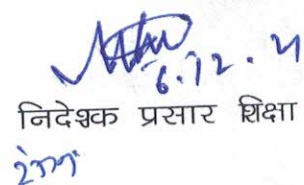 6.12.21
निदेशक प्रसार शिक्षा